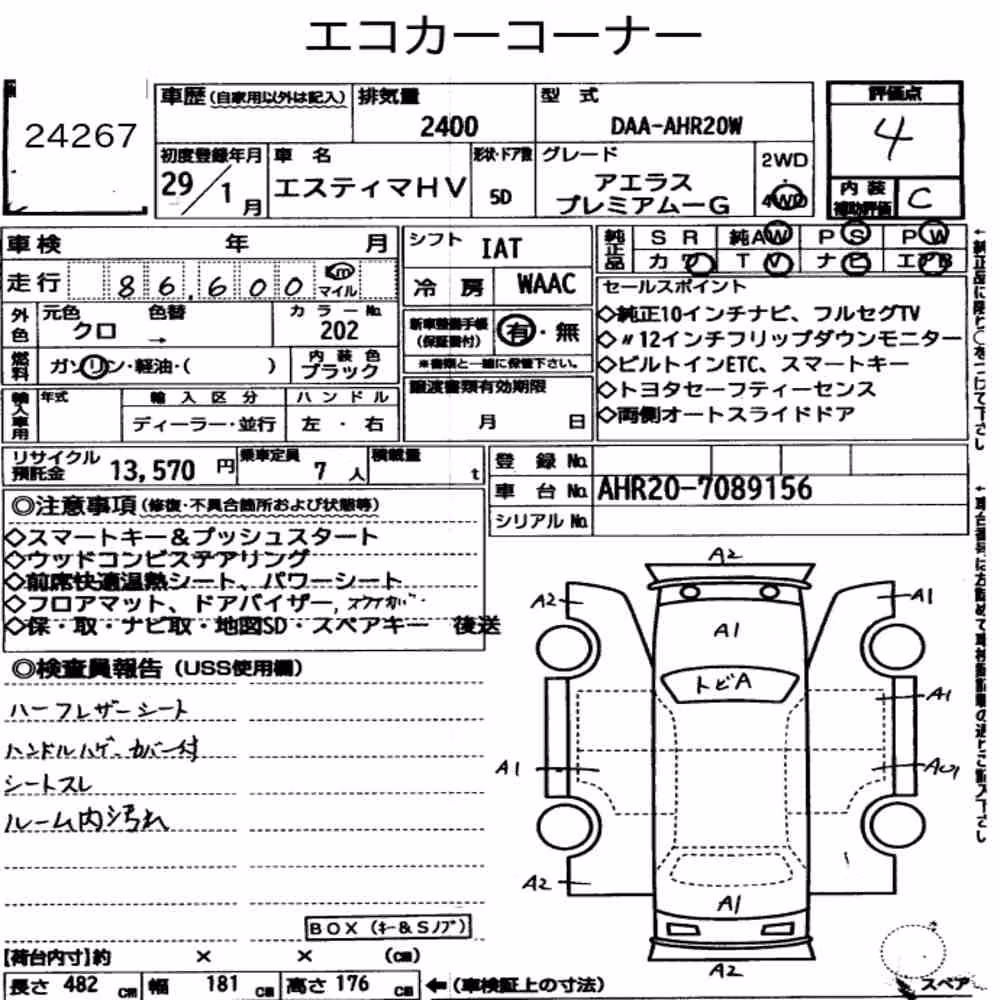 エコカーコーナー
24267
車歴 (自家用以外は記入) 排気量 2400
型式 DAA-AHR20W
評価点 4
初度登録年月 29/1月
車名 エスティマHV
形状・ドア数 5D
グレード アエラス プレミアムーG
2WD ・ 4WD
内装補助評価 C
車検 年 月
シフト IAT
純正品 SR 純AW PS PW
カワ TV ナビ エアB
走行 86,600 Km マイル
冷房 WAAC
セールスポイント
◇純正10インチナビ、フルセグTV
◇〃12インチフリップダウンモニター
◇ビルトインETC、スマートキー
◇トヨタセーフティーセンス
◇両側オートスライドドア
外色 元色 クロ 色替 → カラーNo. 202
新車整備手帳 (保証書付) 有・無
※書類と一緒に保管下さい。
燃料 ガソリン・軽油・( ) 内装色 ブラック
譲渡書類有効期限 月 日
輸入車用 年式 輸入区分 ハンドル
ディーラー・並行 左・右
リサイクル預託金 13,570円 乗車定員 7人 積載量 t
登録No.
車台No. AHR20-7089156
シリアルNo.
◎注意事項 (修復・不具合箇所および状態等)
◇スマートキー&プッシュスタート
◇ウッドコンビステアリング
◇前席快適温熱シート、パワーシート
◇フロアマット、ドアバイザー,
◇保・取・ナビ取・地図SD・スペアキー 後送
◎検査員報告 (USS使用欄)
ハーフレザーシート
ハンドルハゲ、カバー付
シートスレ
ルーム内汚れ
BOX (キー&Sノブ)
A2
A2 A1
A1
トビA
A1
A1
A2
A1
A2
スペア
【荷台内寸】約 × × (cm)
長さ 482 cm 幅 181 cm 高さ 176 cm ← (車検証上の寸法)